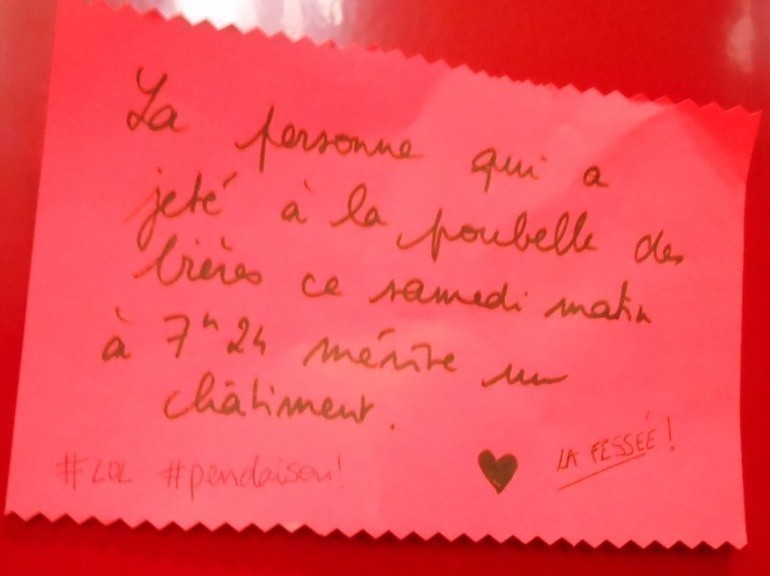 La personne qui a
jeté à la poubelle des
bières ce samedi matin
à 7h24 mérite un
châtiment.
#LOL #pendaison!
♥ LA FESSÉE!